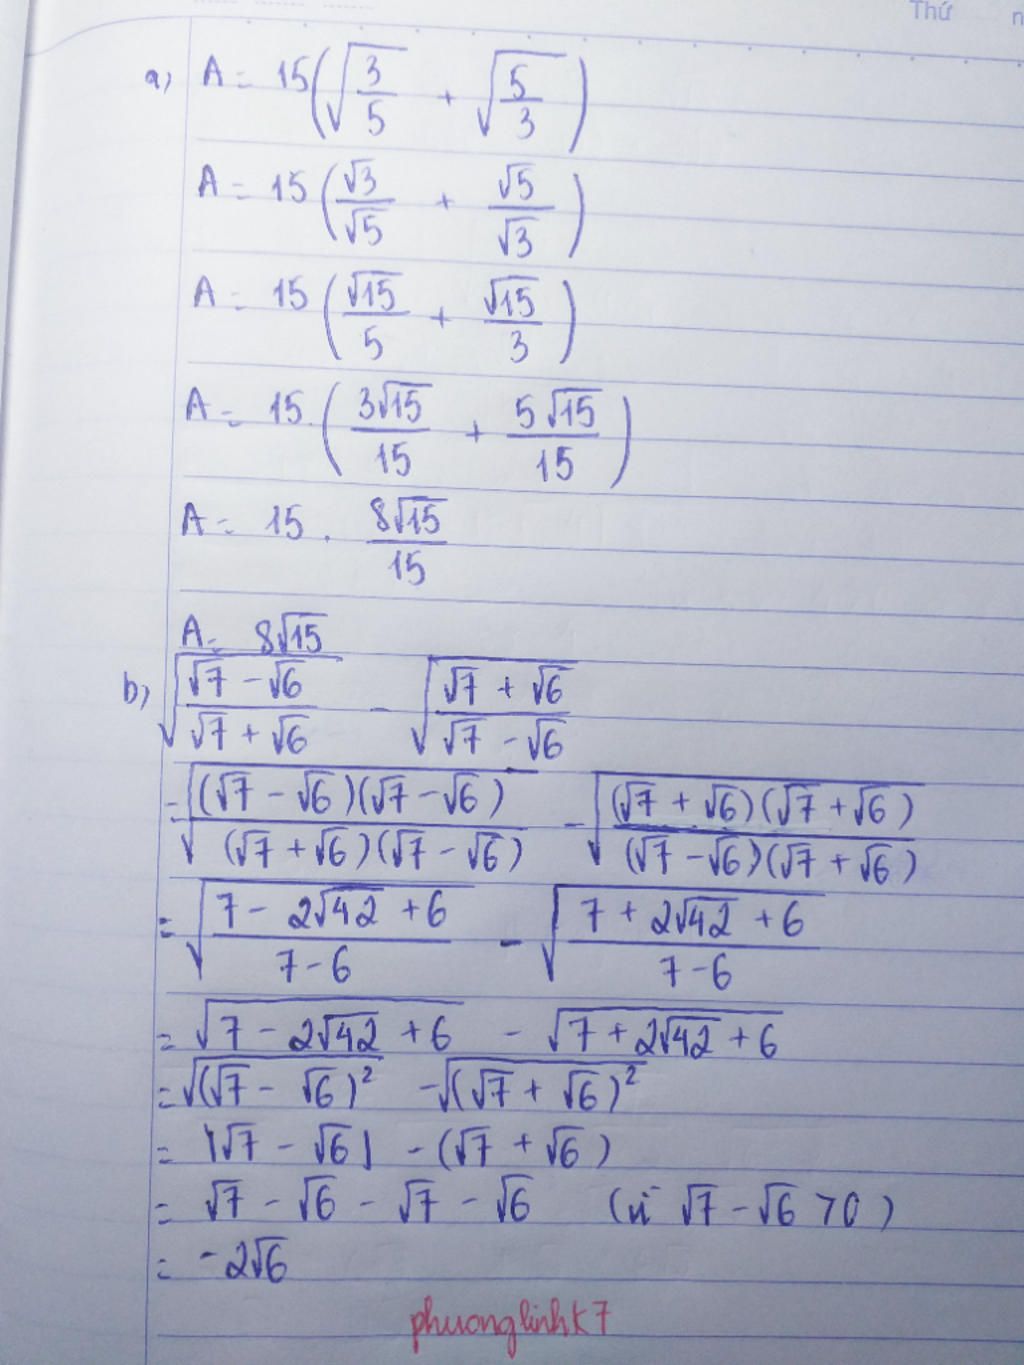 Thứ
a) A = 15(√(3/5) + √(5/3))
A = 15(√3/√5 + √5/√3)
A = 15(√15/5 + √15/3)
A = 15.(3√15/15 + 5√15/15)
A = 15 . 8√15/15
A = 8√15
b) √((√7 - √6)/(√7 + √6)) - √((√7 + √6)/(√7 - √6))
= √((√7 - √6)(√7 - √6)/((√7 + √6)(√7 - √6))) - √((√7 + √6)(√7 + √6)/((√7 - √6)(√7 + √6)))
= √((7 - 2√42 + 6)/(7 - 6)) - √((7 + 2√42 + 6)/(7 - 6))
= √(7 - 2√42 + 6) - √(7 + 2√42 + 6)
= √((√7 - √6)²) - √((√7 + √6)²)
= |√7 - √6| - (√7 + √6)
= √7 - √6 - √7 - √6 (vì √7 - √6 > 0)
= -2√6
phuonglinhk7